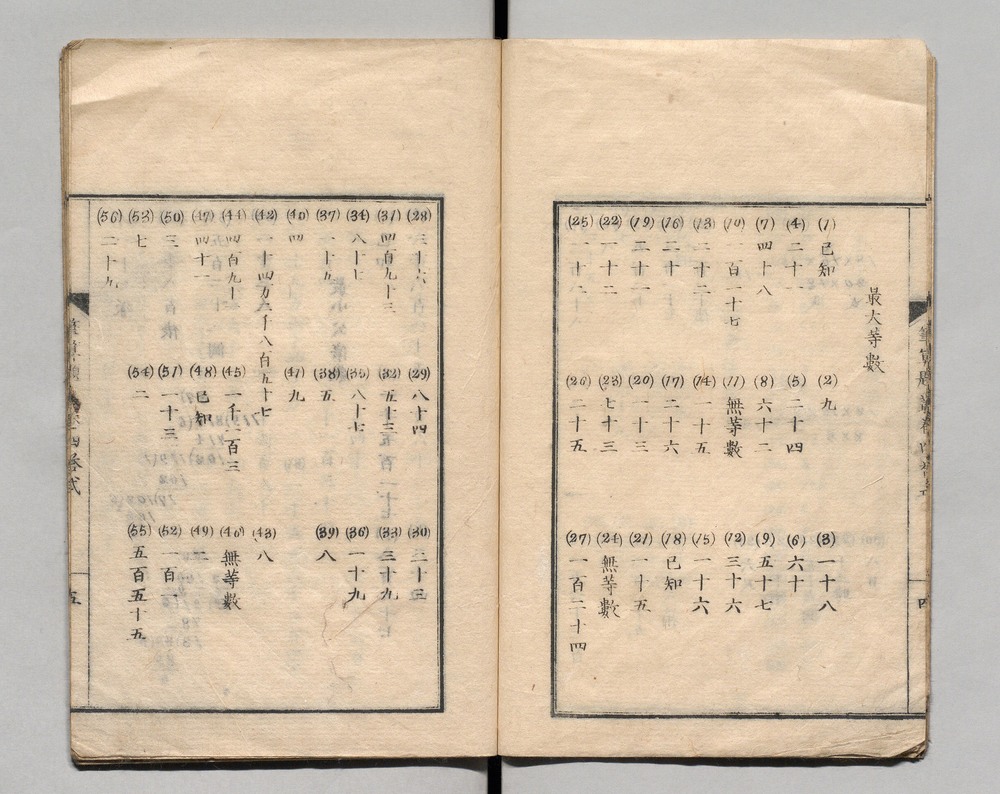 最大等數
(1)已知
(2)九
(3)一十八
(4)二十一
(5)二十四
(6)六十
(7)四十八
(8)六十二
(9)五十七
(10)一百一十七
(11)無等數
(12)三十六
(13)二十二
(14)一十五
(15)一十六
(16)二十一
(17)二十六
(18)已知
(19)二十一
(20)一十三
(21)一十五
(22)一十二
(23)七十三
(24)無等數
(25)一十二
(26)二十五
(27)一百二十四
四
(28)三十六
(29)八十四
(30)三十三
(31)四百九十三
(32)五十三
(33)三十九
(34)八十七
(35)八十七
(36)一十九
(37)一十九
(38)五
(39)八
(40)四
(41)九
(42)一十四万二千八百五十七
(43)八
(44)四百九十二
(45)一千一百三
(46)無等數
(47)四十一
(48)已知
(49)二
(50)三
(51)一十三
(52)一百一
(53)七
(54)二
(55)五百五十五
(56)二十九
五